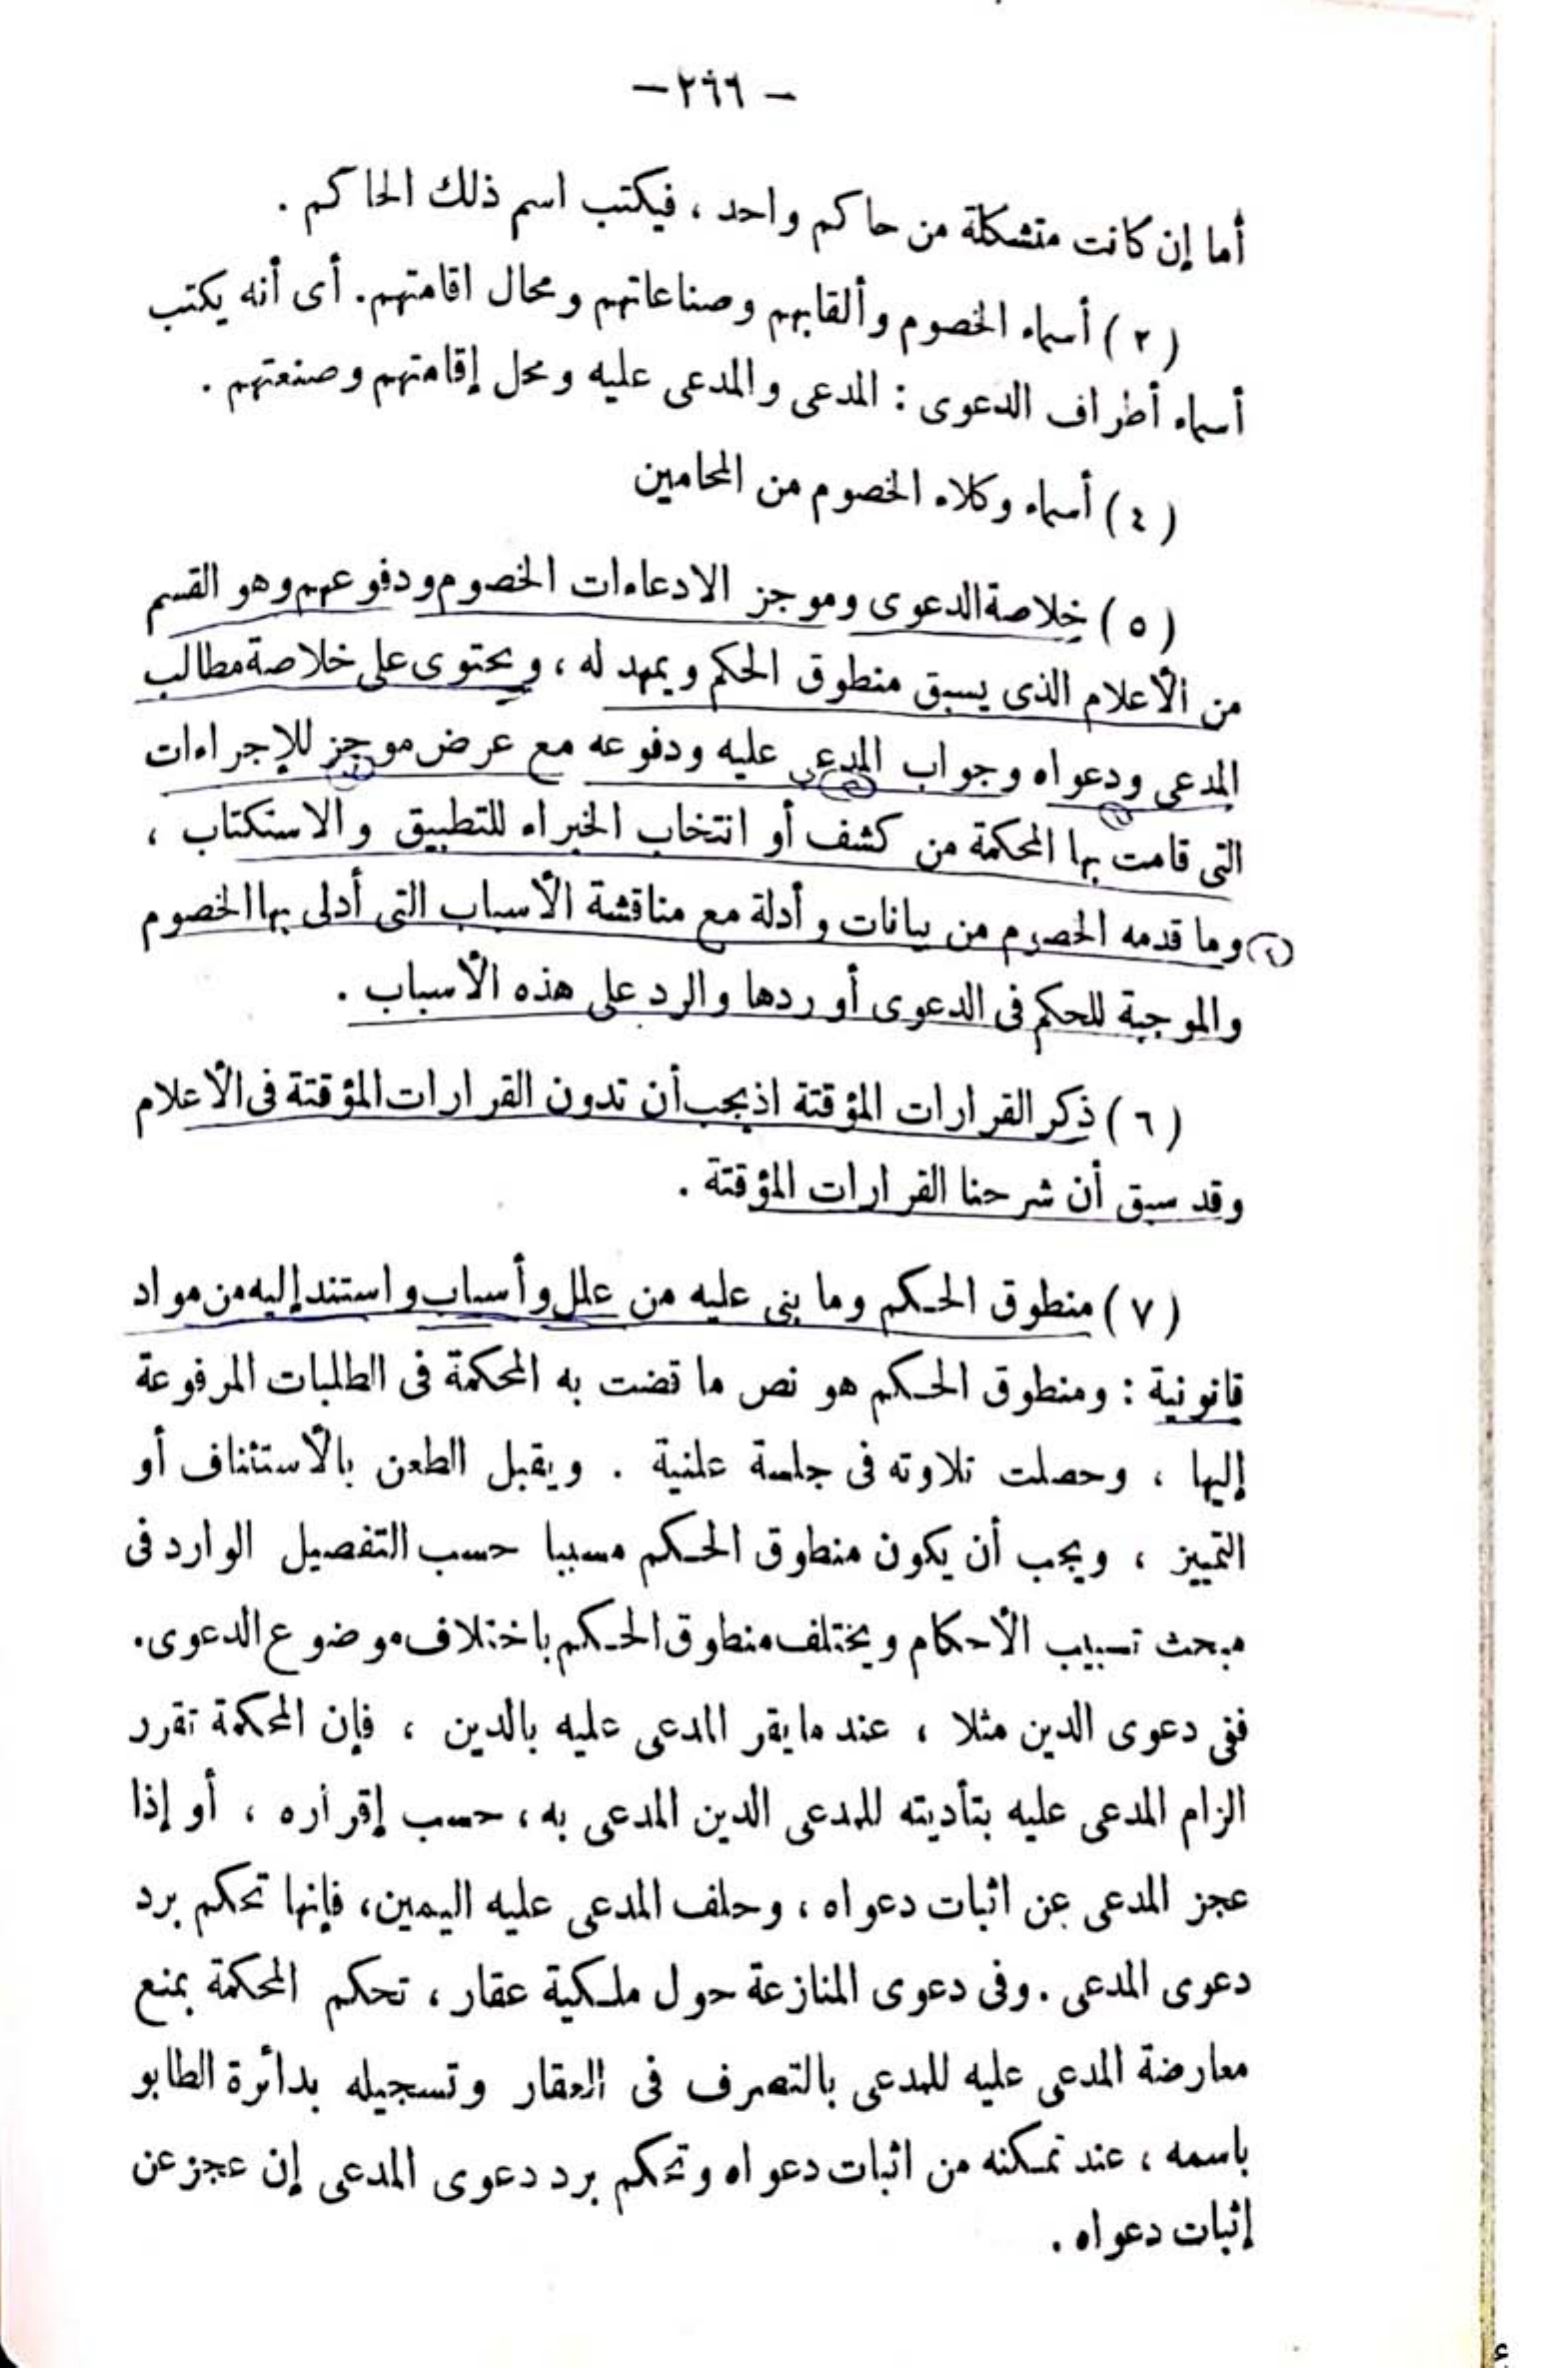 — ٢٦٦ —
أما إن كانت متشكلة من حاكم واحد ، فيكتب اسم ذلك الحاكم .
( ٣ ) أسماء الخصوم وألقابهم وصناعاتهم ومحال اقامتهم . أى أنه يكتب
أسماء أطراف الدعوى : المدعى والمدعى عليه ومحل إقامتهم وصنعتهم .
( ٤ ) أسماء وكلاء الخصوم من المحامين
( ٥ ) خلاصة الدعوى وموجز الادعاءات الخصوم ودفوعهم وهو القسم
من الأعلام الذى يسبق منطوق الحكم ويمهد له ، ويحتوى على خلاصة مطالب
المدعى ودعواه وجواب المدعى عليه ودفوعه مع عرض موجز للإجراءات
التى قامت بها المحكمة من كشف أو انتخاب الخبراء للتطبيق والاستكتاب ،
وما قدمه الخصوم من بيانات وأدلة مع مناقشة الأسباب التى أدلى بها الخصوم
والموجبة للحكم فى الدعوى أو ردها والرد على هذه الأسباب .
( ٦ ) ذكر القرارات المؤقتة اذ يجب أن تدون القرارات المؤقتة فى الأعلام
وقد سبق أن شرحنا القرارات المؤقتة .
( ٧ ) منطوق الحكم وما بنى عليه من علل وأسباب واستند إليه من مواد
قانونية : ومنطوق الحكم هو نص ما قضت به المحكمة فى الطلبات المرفوعة
إليها ، وحصلت تلاوته فى جلسة علنية . ويقبل الطعن بالأستئناف أو
التمييز ، ويجب أن يكون منطوق الحكم مسببا حسب التفصيل الوارد فى
مبحث تسبيب الأحكام ويختلف منطوق الحكم باختلاف موضوع الدعوى .
ففى دعوى الدين مثلا ، عند ما يقر المدعى عليه بالدين ، فإن المحكمة تقرر
الزام المدعى عليه بتأديته للمدعى الدين المدعى به ، حسب إقراره ، أو إذا
عجز المدعى عن اثبات دعواه ، وحلف المدعى عليه اليمين ، فإنها تحكم برد
دعوى المدعى . وفى دعوى المنازعة حول ملكية عقار ، تحكم المحكمة بمنع
معارضة المدعى عليه للمدعى بالتصرف فى العقار وتسجيله بدائرة الطابو
باسمه ، عند تمكنه من اثبات دعواه وتحكم برد دعوى المدعى إن عجز عن
إثبات دعواه .